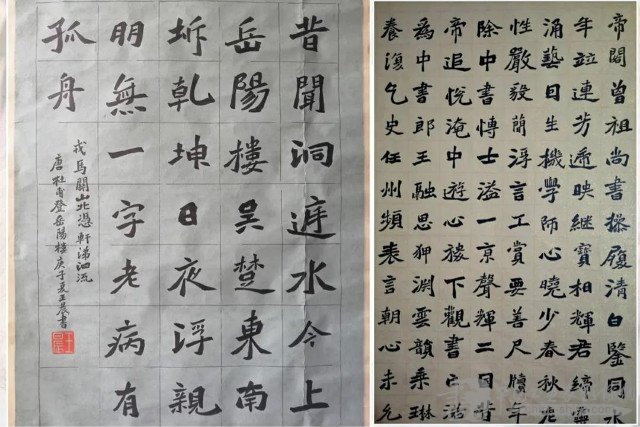 昔聞洞庭水今上
岳陽樓吳楚東南
坼乾坤日夜浮親
朋無一字老病有
孤舟
戎馬關山北憑軒涕泗流
唐杜甫登岳陽樓庚子夏王晨書
王晨
帝閣曾祖尚書操履清白鑒同水
年竝連芳遞映繼寶相輝君締靈
涌藝日生機學師心曉少春秋
性嚴毅簡浮言工賞要善尺牘年
除中書博士溢一京聲輝二國昔
帝追悅淹中遊心稷下觀書亡落
為中書郎王融思狎淵雲韻乘琳
養復乞史任州頻表言朝心未允